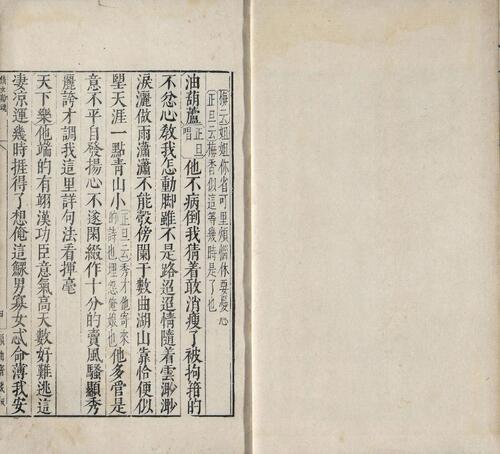 梅云姐姐你省可里煩惱休要憂心
正旦云梅香似這等幾時是了也
油葫蘆正旦唱他不病倒我猜着敢消瘦了被拘箝的
不忿心教我怎動脚雖不是路迢迢情隨着雲渺渺
淚灑做雨瀟瀟不能彀傍闌干數曲湖山靠恰便似
望天涯一點青山小正旦云秀才他寄來的詩也埋怨俺娘也他多管是
意不平自發揚心不遂閑綴作十分的賣風騷顯秀
麗誇才調我這里詳句法看揮毫
天下樂他端的有翊漢功臣意氣高天數好難逃這
凄涼運幾時捱得了想俺這鰥男寡女忒命薄我安
四